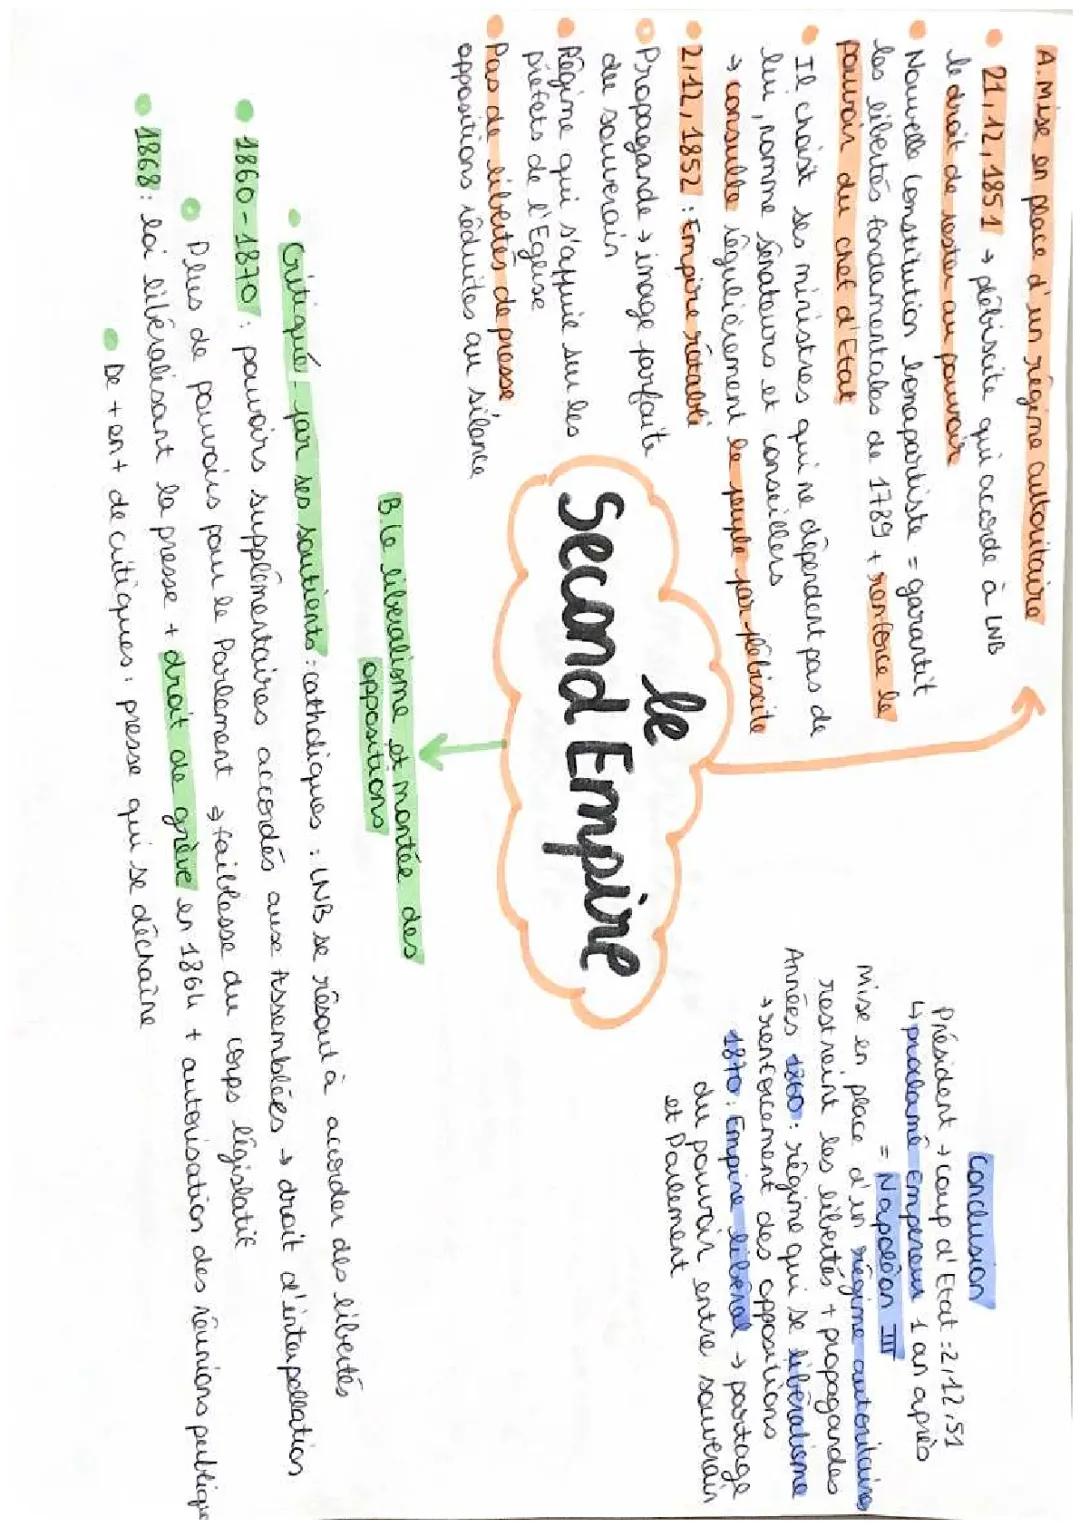 le
Second Empire
A. Mise en place d'un régime autoritaire
21,12,1851 → plébiscite qui accorde à LNB
le droit de rester au pouvoir
Nouvelle Constitution bonapartiste = garantit
les libertés fondamentales de 1789 + renforce le
pouvoir du chef d'Etat
Il choisit ses ministres qui ne dépendent pas de
lui, nomme sénateurs et conseillers
→ consulte régulièrement le peuple par plébiscite
2,12,1852 : Empire rétabli
Propagande → image parfaite
du souverain
Régime qui s'appuie sur les
préfets de l'Eglise
Pas de libertés de presse
oppositions réduites au silence
B. Le libéralisme et montée des
oppositions
Critiqué par ses soutients : catholiques : LNB se résout à accorder des libertés
1860-1870 : pouvoirs supplémentaires accordés aux Assemblées → droit d'interpellation
Plus de pouvoirs pour le Parlement → faiblesse du corps législatif
1868 : loi libéralisant la presse + droit de grève en 1864 + autorisation des réunions publique
De + en + de critiques : presse qui se déchaîne
Conclusion
Président → coup d'Etat : 2,12,51
↳ proclamé empereur 1 an après
= Napoléon III
Mise en place d'un régime autoritaire
restreint les libertés + propagandes
Années 1860 : régime qui se libéralisme
→ renforcement des oppositions
1870 : Empire libéral → partage
du pouvoir entre souverain
et Parlement